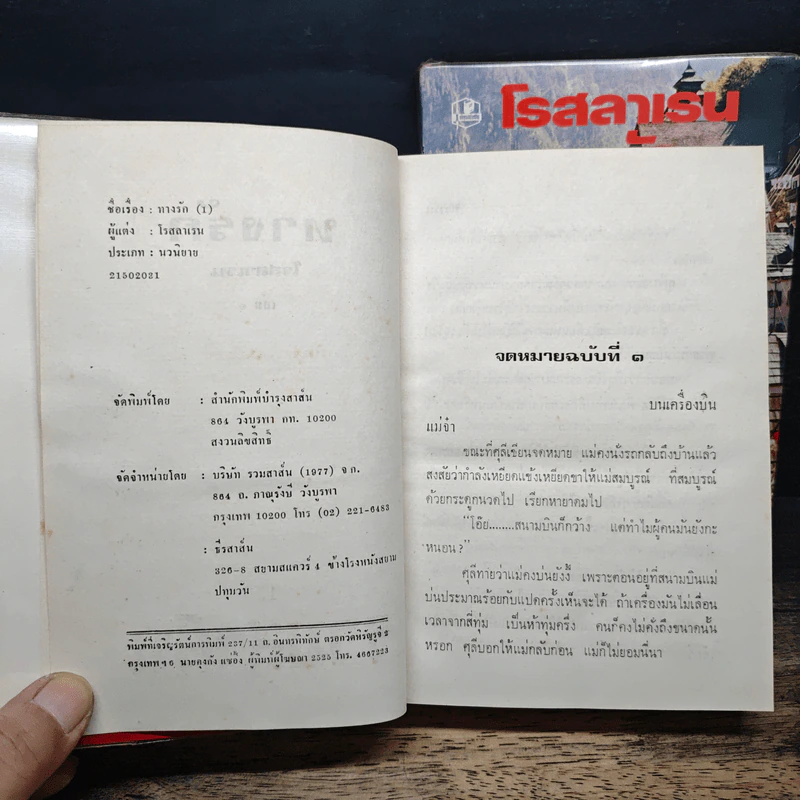 ชื่อเรื่อง : ทางรัก (1)
ผู้แต่ง : โรสลาเรน
ประเภท : นวนิยาย
21502031
จัดพิมพ์โดย : สำนักพิมพ์บำรุงสาส์น
864 วังบูรพา กท. 10200
สงวนลิขสิทธิ์
จัดจำหน่ายโดย : บริษัท รวมสาส์น (1977) จก.
864 ถ. ภาณุรังษี วังบูรพา
กรุงเทพ 10200 โทร (02) 221-6483
: ธีรสาส์น
326-8 สยามสแควร์ 4 ข้างโรงหนังสยาม
ปทุมวัน
พิมพ์ที่เจริญรัตน์การพิมพ์ 237/11 ถ. อินทรพิทักษ์ ตรอกวัดหิรัญรูจี 2
กรุงเทพ ฯ 6 นายคุงกัง แซ่อึ้ง ผู้พิมพ์ผู้โฆษณา 2525 โทร. 4667223
โรสลาเรน
จดหมายฉบับที่ ๑
บนเครื่องบิน
แม่จ๋า
ขณะที่ศุลีเขียนจดหมาย แม่คงนั่งรถกลับถึงบ้านแล้ว
สงสัยว่ากำลังเหยียดแข้งเหยียดขาให้แม่สมบูรณ์ ที่สมบูรณ์
ด้วยกระดูกนวดไป เรียกหายาดมไป
"โอ๊ย........สนามบินก็กว้าง แต่ทำไมผู้คนมันยังกะ
หนอน?"
ศุลีทายว่าแม่คงบ่นยังงี้ เพราะตอนอยู่ที่สนามบินแม่
บ่นประมาณร้อยกับแปดครั้งเห็นจะได้ ถ้าเครื่องมันไม่เลื่อน
เวลาจากสี่ทุ่ม เป็นห้าทุ่มครึ่ง คนก็คงไม่คั่งถึงขนาดนั้น
หรอก ศุลีบอกให้แม่กลับก่อน แม่ก็ไม่ยอมนี่นา